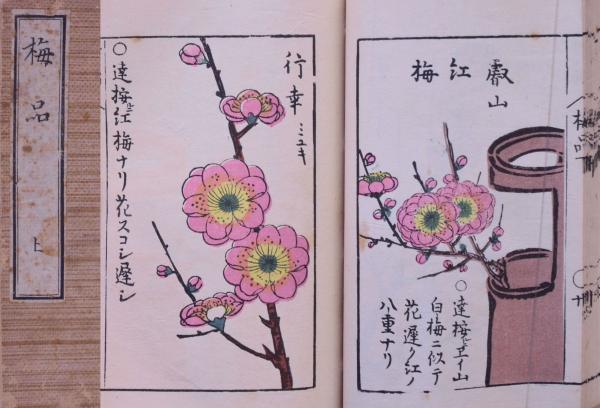 梅品
上
叡山
江梅
○達按ヒエイ山
白梅ニ似テ
花遅ク江ノ
八重ナリ
行幸
ミユキ
○達按紅梅ナリ花スコシ遅シ
梅品